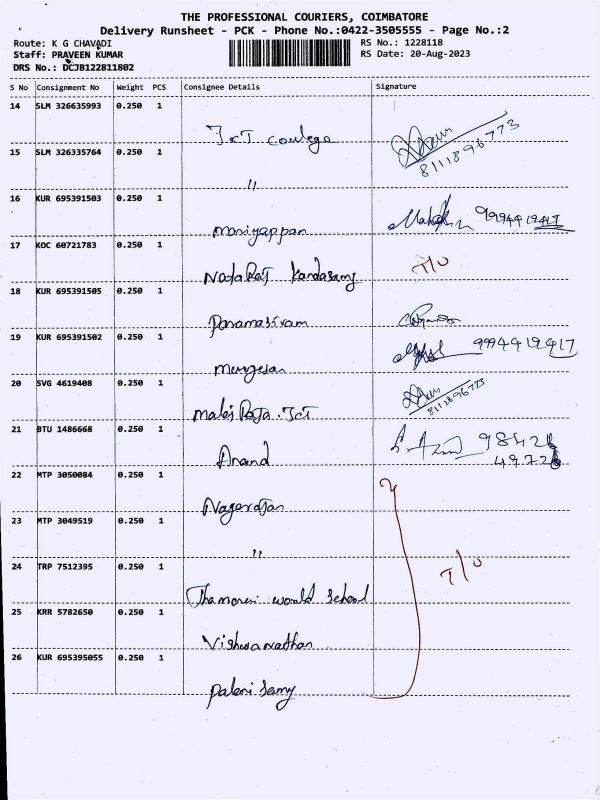 THE PROFESSIONAL COURIERS, COIMBATORE
Delivery Runsheet - PCK - Phone No.:0422-3505555 - Page No.:2
Route: K G CHAVADI RS No.: 1228118
Staff: PRAVEEN KUMAR RS Date: 20-Aug-2023
DRS No.: DCJB122811802
S No Consignment No Weight PCS Consignee Details Signature
14 SLM 326635993 0.250 1
JCT College
8111896773
15 SLM 326335764 0.250 1
"
16 KUR 695391503 0.250 1
Maniyappan 9994419417
17 KOC 60721783 0.250 1
NataRaj Kandasamy T/O
18 KUR 695391505 0.250 1
Paramasivam
19 KUR 695391502 0.250 1
Murugesan 9994419417
20 SVG 4619408 0.250 1
Malai Raja. JCT
21 BTU 1486668 0.250 1
Anand
22 MTP 3050084 0.250 1
Nagarajan
23 MTP 3049519 0.250 1
"
24 TRP 7512395 0.250 1
T/O
world School
25 KRR 5782650 0.250 1
Vishwanathan
26 KUR 695395055 0.250 1
Palanisamy